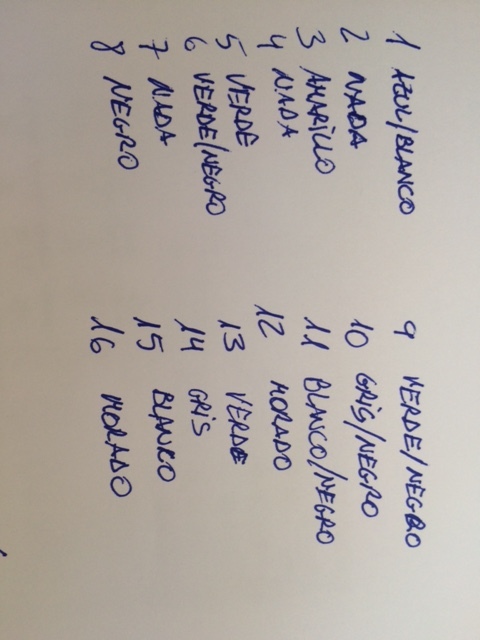 1 AZUL/BLANCO
2 NADA
3 AMARILLO
4 NADA
5 VERDE
6 VERDE/NEGRO
7 NADA
8 NEGRO
9 VERDE/NEGRO
10 GRIS/NEGRO
11 BLANCO/NEGRO
12 MORADO
13 VERDE
14 GRIS
15 BLANCO
16 MORADO